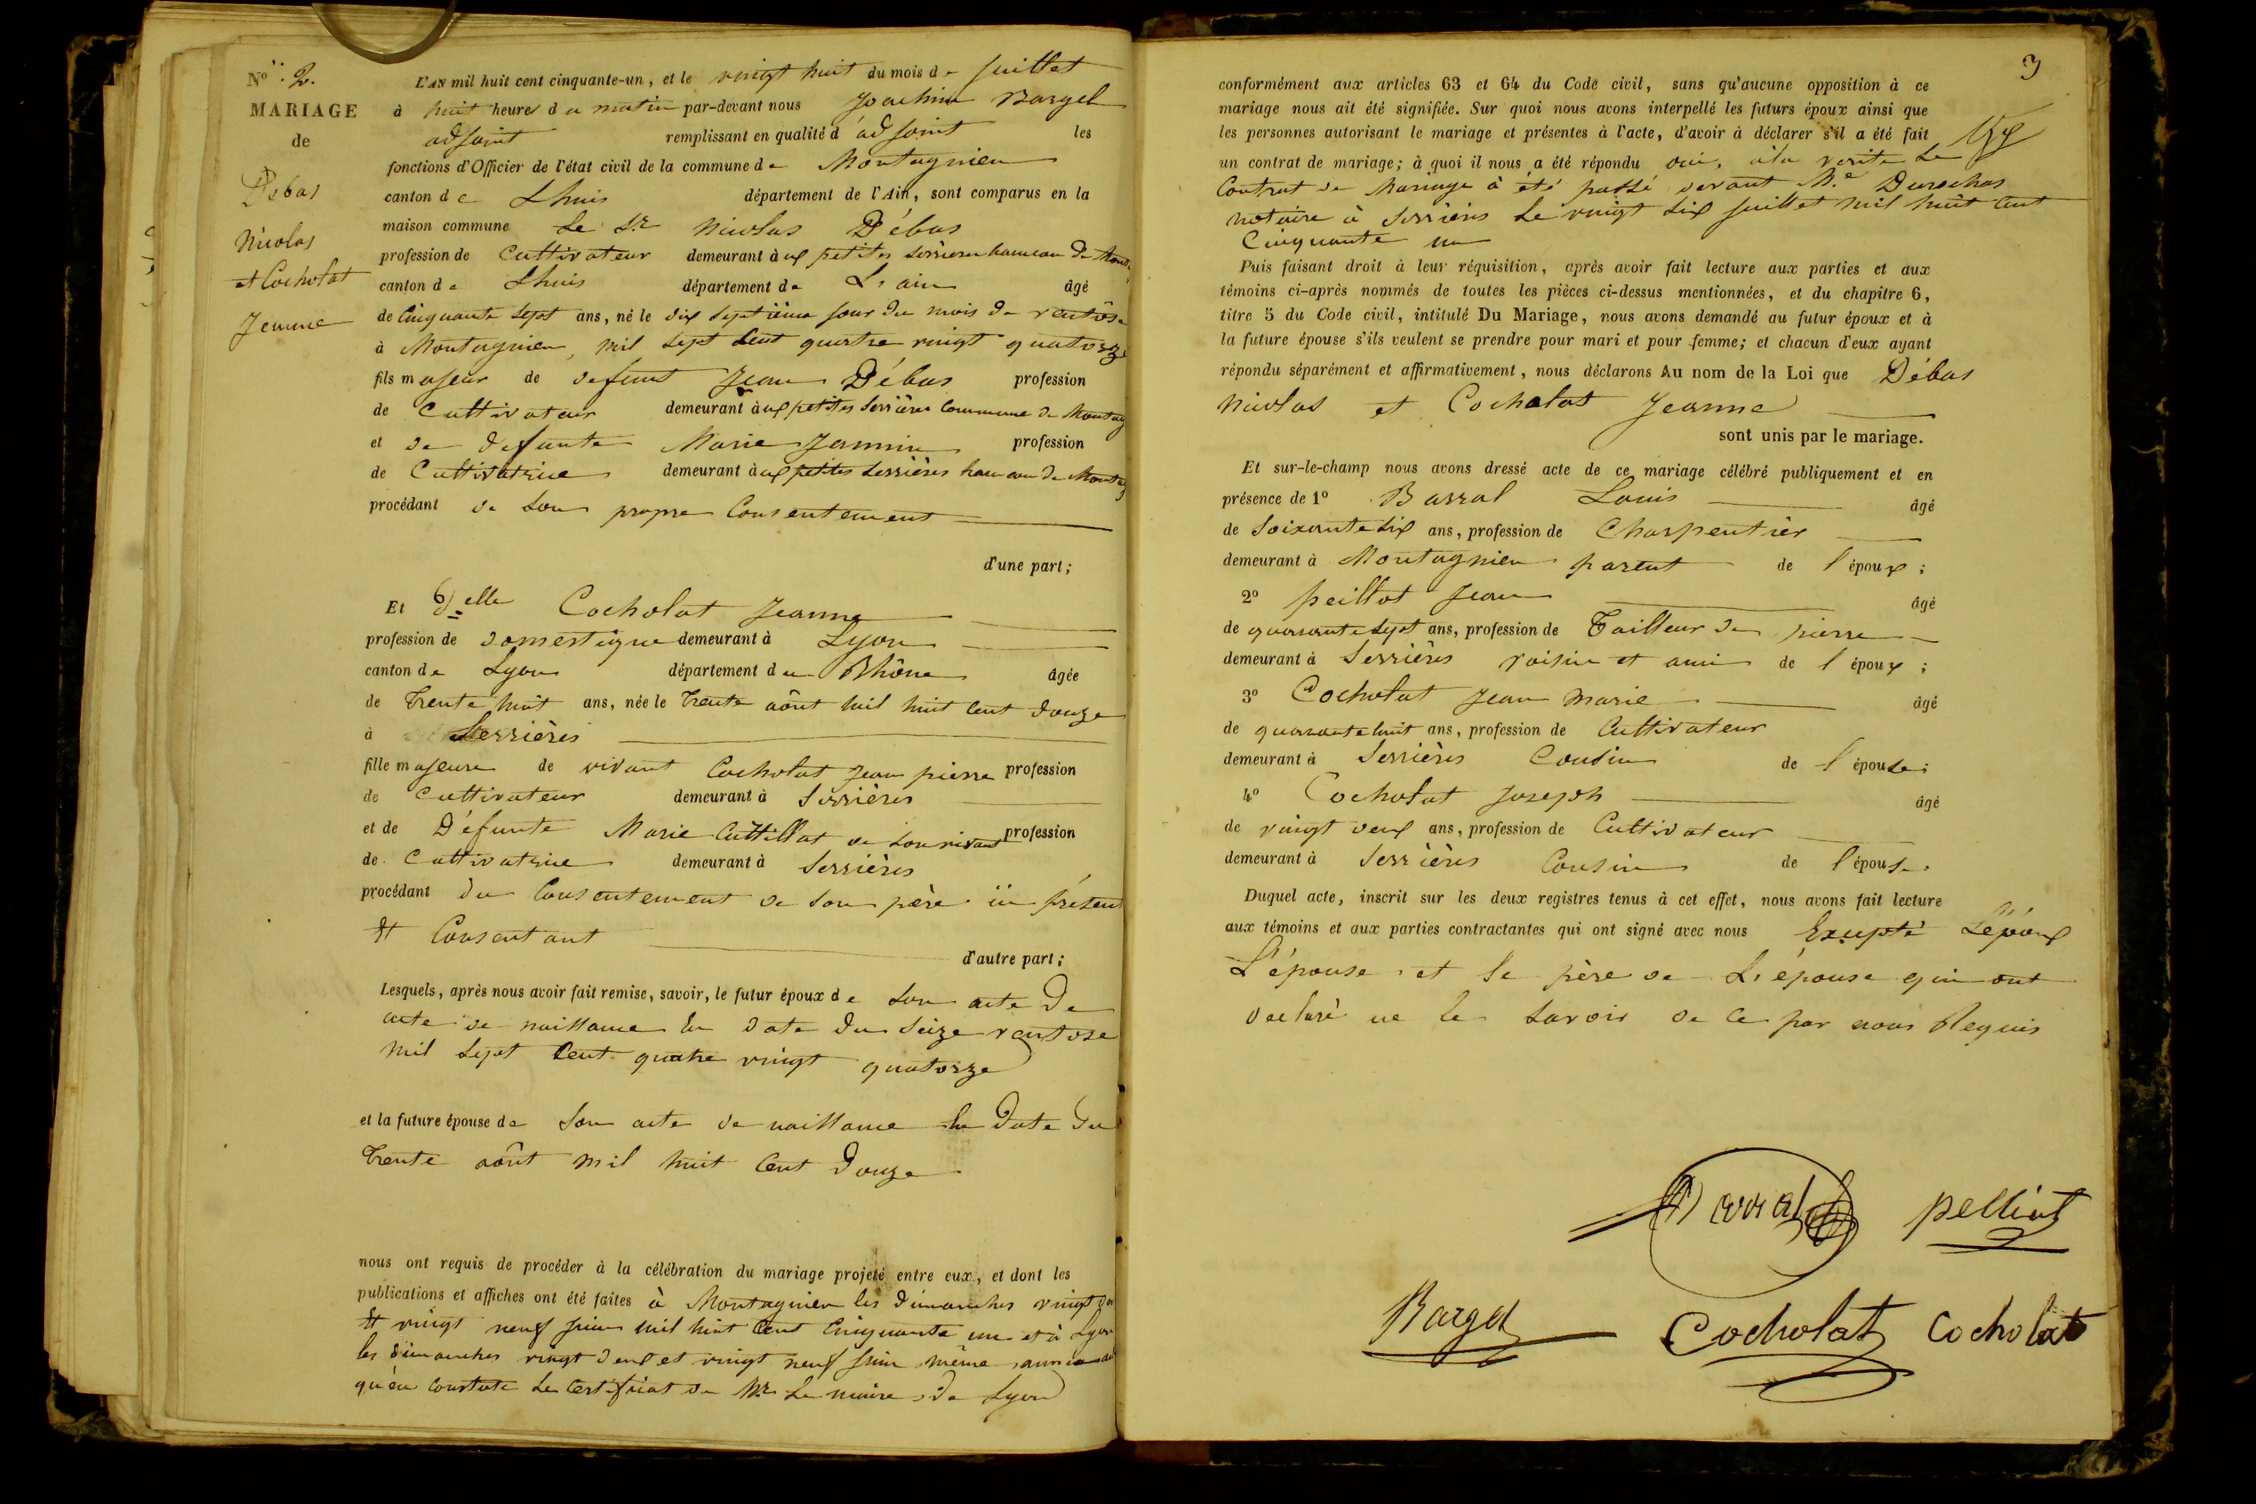 N° 2.
MARIAGE
de
Débas
Nicolas
et Cocholat
Jeanne
L'AN mil huit cent cinquante-un, et le vingt huit du mois de juillet
à huit heures du matin par-devant nous Joachim Bargel
adjoint remplissant en qualité d'adjoint les
fonctions d'Officier de l'état civil de la commune de Montagnieu
canton de Lhuis département de l'Ain, sont comparus en la
maison commune Le Sr Nicolas Débas
profession de Cultivateur demeurant à ux petites Serrières hameau de Mont
canton de Lhuis département de L'ain âgé
de Cinquante Sept ans, né le dix Septième jour du mois de ventôse
à Montagnieu, mil Sept Cent quatre vingt quatorze
fils majeur de défunt Jean Débas profession
de Cultivateur demeurant à ux petites Serrières Commune de Montag
et de defunte Marie Jannin profession
de Cultivatrice demeurant à ux petites Serrières hameau de Montag
procédant de Son propre Consentement
d'une part;
Et Delle Cocholat Jeanne
profession de domestique demeurant à Lyon
canton de Lyon département du Rhône âgée
de Trente huit ans, née le Trente aôut mil huit Cent douze
à Serrières
fille majeure de vivant Cocholat Jean pierre profession
de Cultivateur demeurant à Serrières
et de Défunte Marie Cuttillat de Son vivant profession
de Cultivatrice demeurant à Serrières
procédant du Consentement de Son père ici présent
Et Consentant
d'autre part;
Lesquels, après nous avoir fait remise, savoir, le futur époux de Son acte De
acte de naissance En Date du Seize ventose
mil Sept Cent quatre vingt quatorze
et la future épouse de Son acte de naissance En Date du
Trente aôut mil huit Cent Douze
nous ont requis de procéder à la célébration du mariage projeté entre eux, et dont les
publications et affiches ont été faites à Montagnieu les dimanches vingt
Et vingt neuf juin mil huit Cent Cinquante un et à Lyon
les dimanches vingt deux et vingt neuf juin même année
qu'en Constate Le Certificat de Mr Le maire de Lyon
3
conformément aux articles 63 et 64 du Code civil, sans qu'aucune opposition à ce
mariage nous ait été signifiée. Sur quoi nous avons interpellé les futurs époux ainsi que
les personnes autorisant le mariage et présentes à l'acte, d'avoir à déclarer s'il a été fait
un contrat de mariage; à quoi il nous a été répondu oui, à la verite Le
Contrat de Mariage à été passé devant Me Durochas
notaire à Serrières Le vingt Six juillet mil huit Cent
Cinquante un
Puis faisant droit à leur réquisition, après avoir fait lecture aux parties et aux
témoins ci-après nommés de toutes les pièces ci-dessus mentionnées, et du chapitre 6,
titre 5 du Code civil, intitulé Du Mariage, nous avons demandé au futur époux et à
la future épouse s'ils veulent se prendre pour mari et pour femme; et chacun d'eux ayant
répondu séparément et affirmativement, nous déclarons Au nom de la Loi que Débas
Nicolas et Cocholat Jeanne
sont unis par le mariage.
Et sur-le-champ nous avons dressé acte de ce mariage célébré publiquement et en
présence de 1° Barral Louis âgé
de Soixante Six ans, profession de Charpentier
demeurant à Montagnieu parent de l'époux;
2° peillot Jean âgé
de quarante Sept ans, profession de Tailleur de pierre
demeurant à Serrières voisin et ami de l'époux;
3° Cocholat Jean marie âgé
de quarante huit ans, profession de Cultivateur
demeurant à Serrières Cousin de l'épouse;
4° Cocholat Joseph âgé
de vingt deux ans, profession de Cultivateur
demeurant à Serrières Cousin de l'épouse.
Duquel acte, inscrit sur les deux registres tenus à cet effet, nous avons fait lecture
aux témoins et aux parties contractantes qui ont signé avec nous Excepté L'époux
L'épouse et Le père de L'épouse qui ont
declaré ne le Savoir de Ce par nous Requis
Barral pelliot
Bargel Cocholat Cocholat